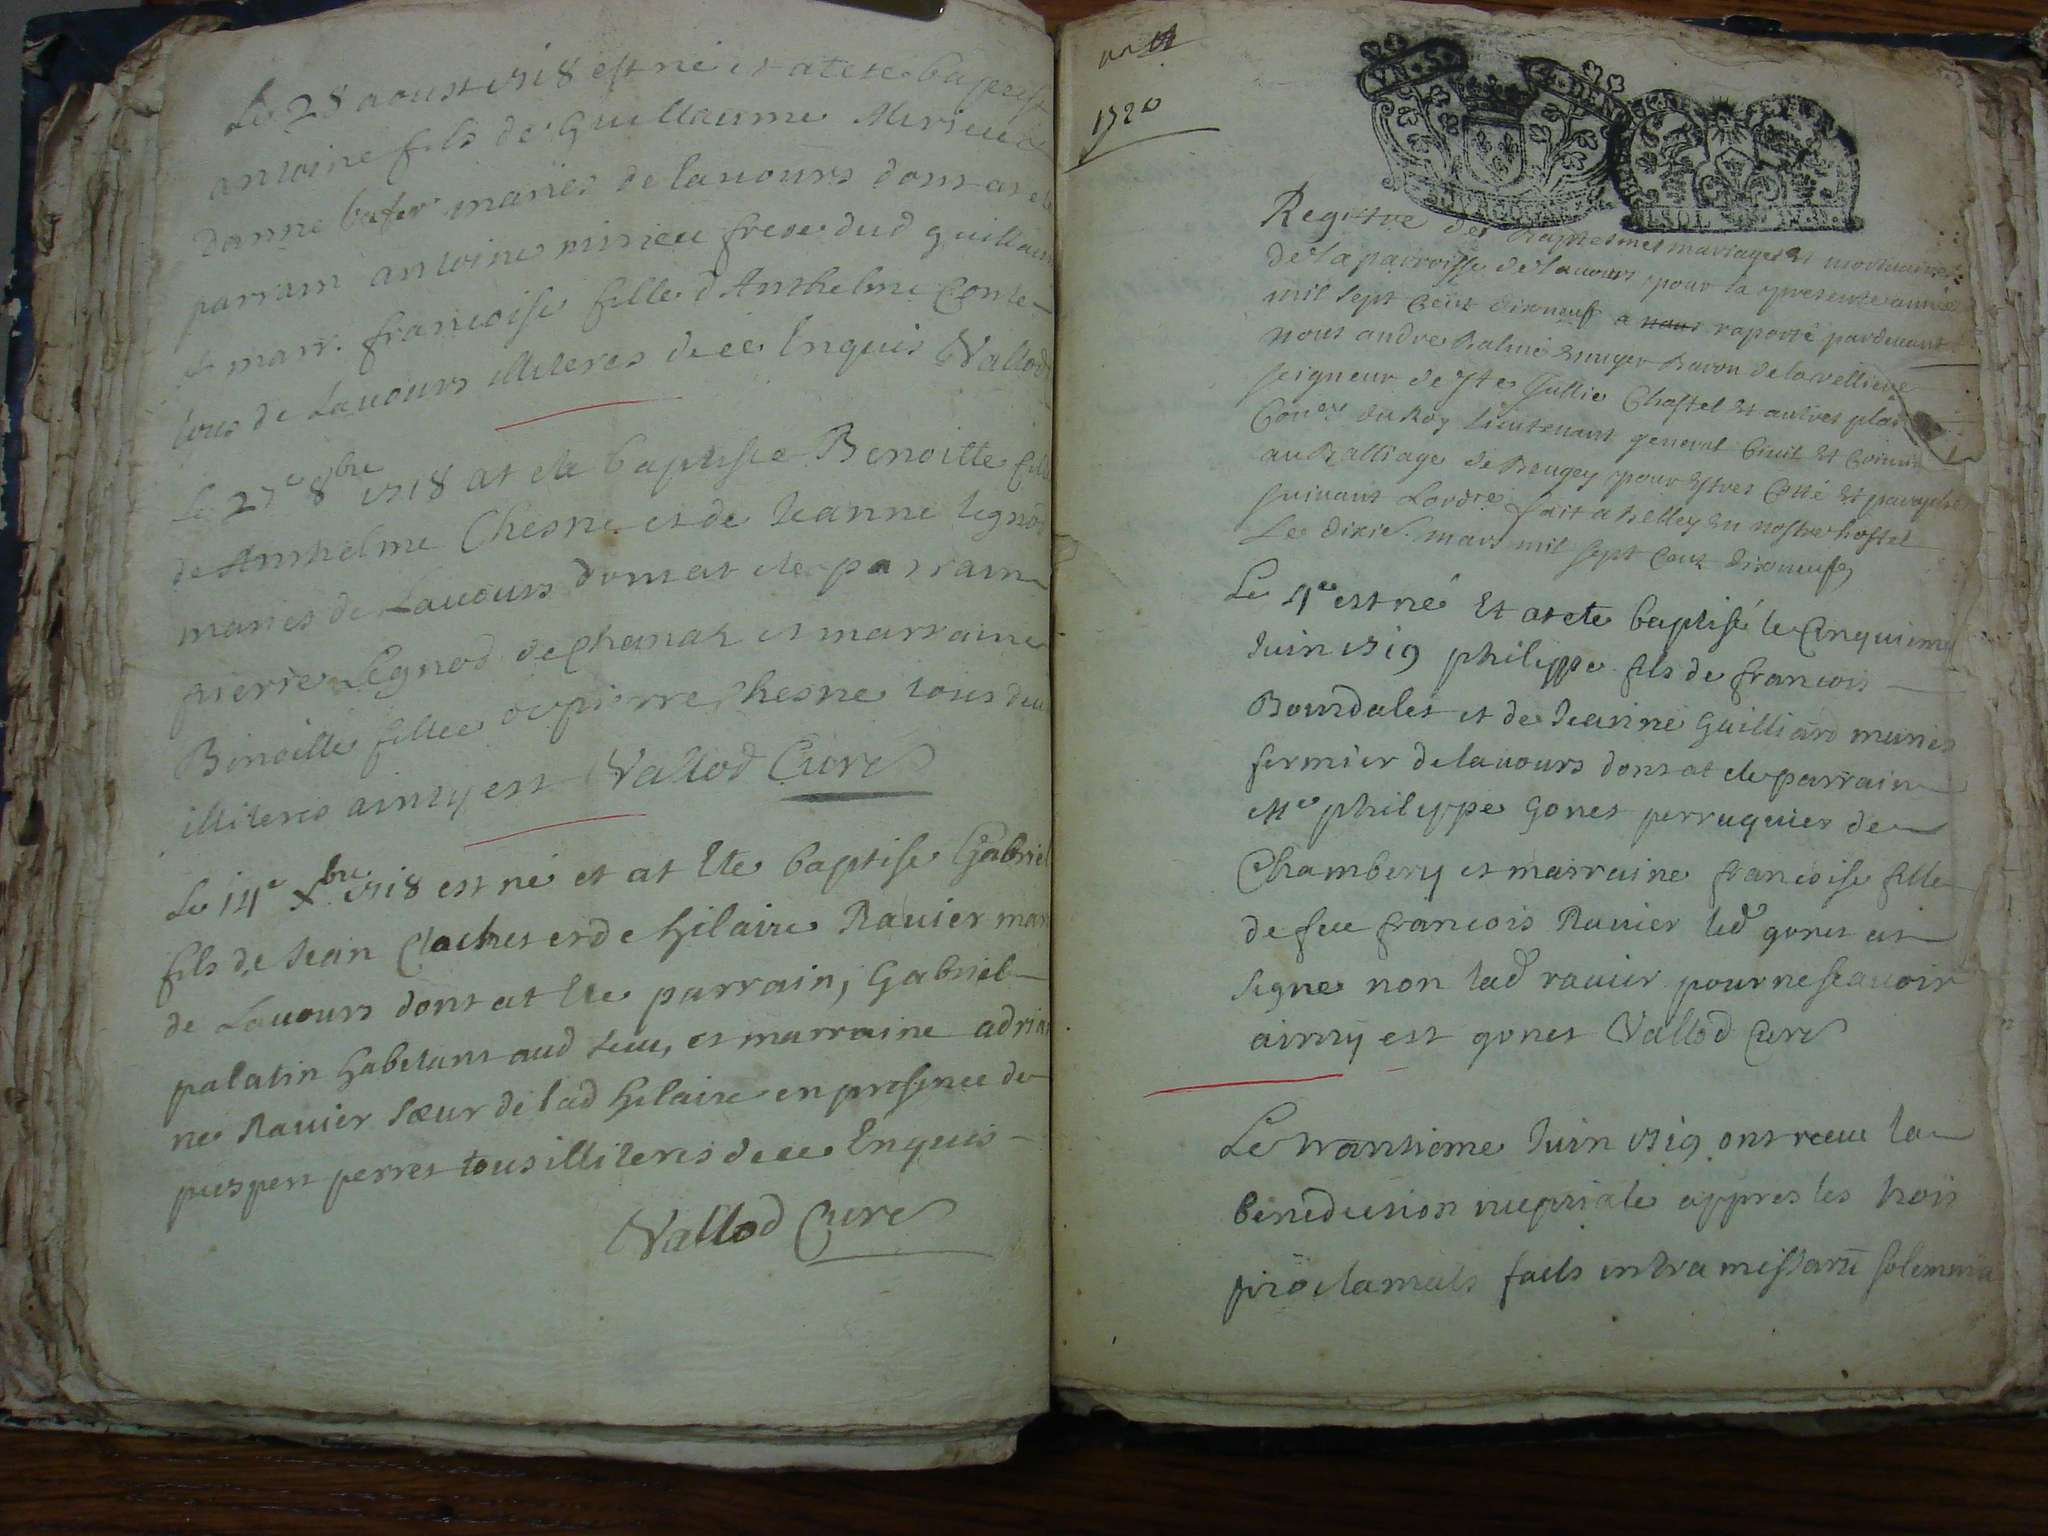 Le 28 aoust 1718 est né et at ete baptisé
antoine fils de Guillaume Mirieu et
danne mariés de lauours dont at ete
parrain antoine mirieu frere dud guillaume
et marr. francoise fille d'Anthelme Conte
tous de Lauours illiteres de ce Enquis Vallod
Le 27e 8bre 1718 at ete baptisée Benoitte fille
de Anthelme Chesne et de Jeanne Legnod
mariés de Lauours dont at ete parrain
pierre Legnod de Chanaz et marraine
Benoitte fillee de pierre Chesne tous deux
illiteres ainsy est Vallod Curé
Le 14e Xbre 1718 est né et at Ete baptise Gabriel
fils de Jean Clochet et de hilaire Rauier mar
de Lauours dont at Ete parrain, Gabriel
palatin habitant aud lieu, et marraine adrian
ne Rauier sœur de lad hilaire en presence de
perret tous illiteres de ce Enquis
Vallod Curé
1720
Registre des Baptesmes mariages Et mortuaires
de la parroisse de Lauours pour la presente année
mil sept Cent dixneuff a nous raporté pardeuant
nous andre Balme Escuyer Baron de
seigneur de Ste Jullie Chastel Et autres places
Coner du Roy Lieutenant general Ciuil Et Criminel
au Balliage de Beugey pour Estres Cotté Et paraphé
suiuant Lordre fait a Belley En nostre hostel
Le dixie. mars mil sept Cent dixneuf
Le 4e est né Et at ete baptisé le Cinquime
Juin 1719 philippe fils de francois
Bourdalet et de Jeanne Guilliard mariés
fermier de lauours dont at ete parrain
Me philippe Gonet perruquier de
Chambery et marraine francoise fille
de feu francois Rauier led gonet at
signé non lad rauier pour ne scauoir
ainsy est gonet Vallod Curé
Le trantieme Juin 1719 ont receu la
benediction nuptiale appres les trois
proclamats faits intra missarū solemnia